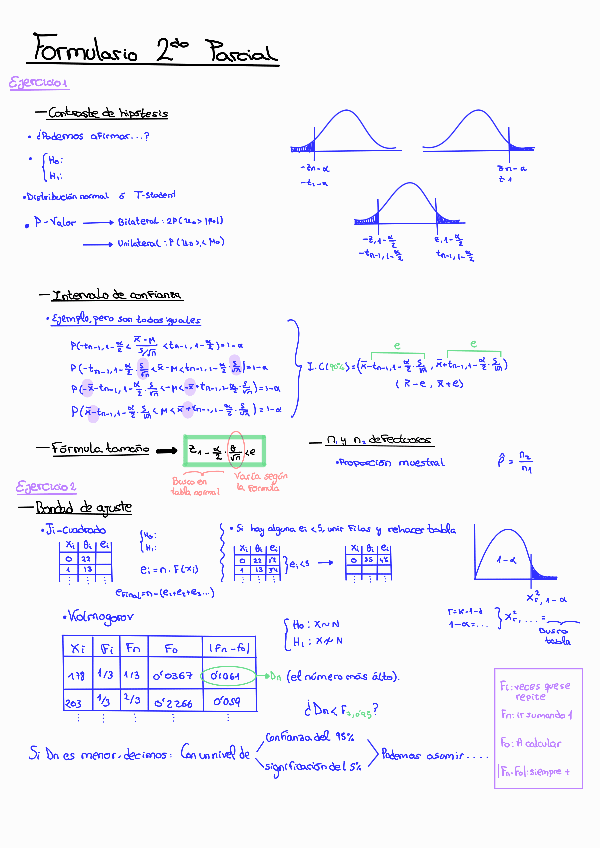 Formulario 2do Parcial
Ejercicio 1
— Contraste de hipótesis
• ¿Podemos afirmar...?
• { H₀:
H₁:
• Distribución normal ó T-student
• P-Valor → Bilateral: 2P(μ₀>|μ₀|)
→ Unilateral: P(μ₀><μ₀)
-z,n-α
-t,-α
z n-α
z 1
-z,1-α/2
-tn-1,1-α/2
z,1-α/2
tn-1,1-α/2
— Intervalo de confianza
• Ejemplo, pero son todas iguales
P(-tn-1,1-α/2 < x̄-μ / S/√n < tn-1,1-α/2) = 1-α
P(-tn-1,1-α/2 · S/√n < x̄-μ < tn-1,1-α/2 · S/√n) = 1-α
P(-x̄-tn-1,1-α/2 · S/√n < -μ < -x̄+tn-1,1-α/2 · S/√n) = 1-α
P(x̄-tn-1,1-α/2 · S/√n < μ < x̄+tn-1,1-α/2 · S/√n) = 1-α
e e
I.C(95%) = (x̄-tn-1,1-α/2 · S/√n, x̄+tn-1,1-α/2 · S/√n)
(x̄-e, x̄+e)
— Fórmula tamaño → z1-α/2 · θ/√n < e
Busco en tabla normal
Varía según la fórmula
— n₁ y n₂ defectuosos
• Proporción muestral p̂ = n₂/n₁
Ejercicio 2
— Bondad de ajuste
• Ji-Cuadrado
xi θi ei
0 22
1 13
: : :
{ H₀:
H₁:
ei = n · F(xi)
eFinal = n-(e₁+e₂+e₃...)
• Si hay alguna ei <5, unir filas y rehacer tabla
xi θi ei
0 22
1 13
: : :
} ei<5 →
xi θi ei
0 35
: : :
1-α
x²r,1-α
r=k-1-
1-α=...
} x²r,...=
Busco tabla
• Kolmogorov
Xi Fi Fn F₀ |Fn-F₀|
178 1/3 1/3 0'0367 0'1061
203 1/3 2/3 0'2266 0'059
: : : : :
→ Dn (el número más alto).
{ H₀: X~N
H₁: X≁N
¿Dn<F,0'95?
Fi: veces que se repite
Fn: ir sumando 1
F₀: A calcular
|Fn-F₀|: siempre +
Si Dn es menor, decimos: Con un nivel de
confianza del 95%
significación del 5%
Podemos asumir.....